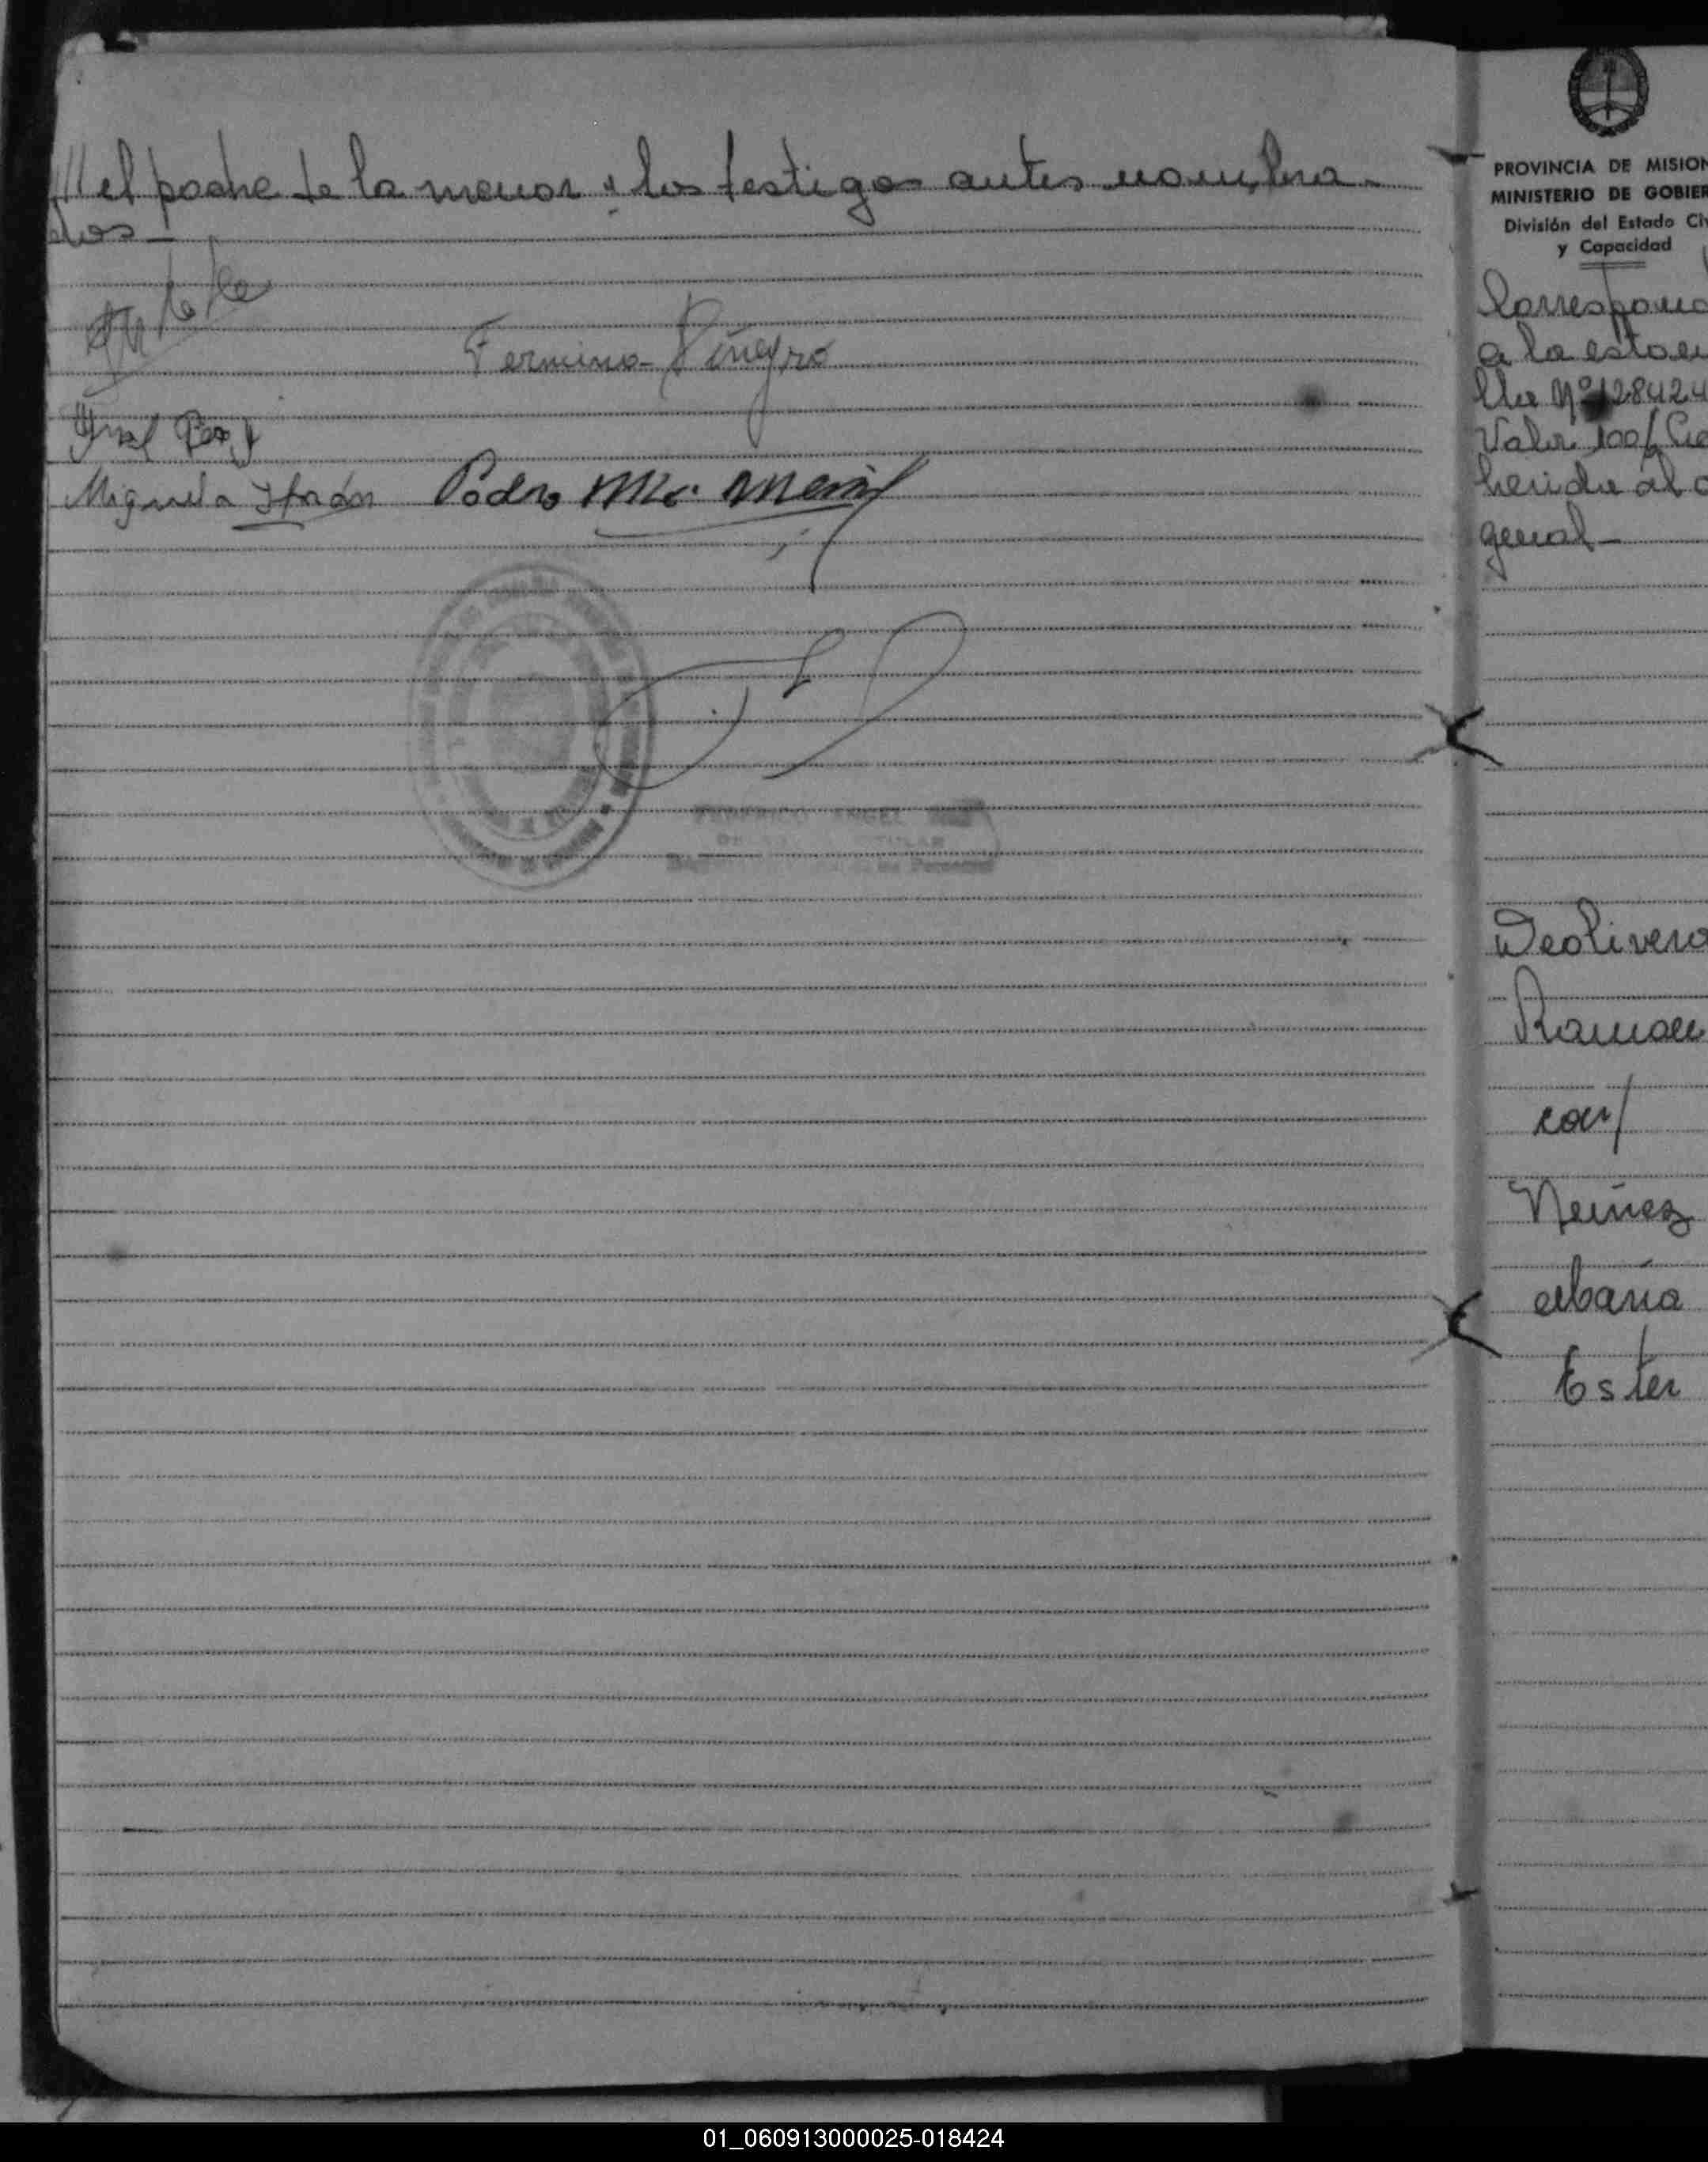 // el padre de la menor y los testigos antes nombra-
dos-
Fermino Piñeyro
Miguela
Pedro
ANGEL
TITULAR
PROVINCIA DE MISION
MINISTERIO DE GOBIER
División del Estado Civ
y Capacidad
Correspond
a la estam
lla Nº 128424
Valor 100/ Cie
herida al o
ginal-
Deolivera
Ramón
con/
Nuñez
María
Ester
01_060913000025-018424